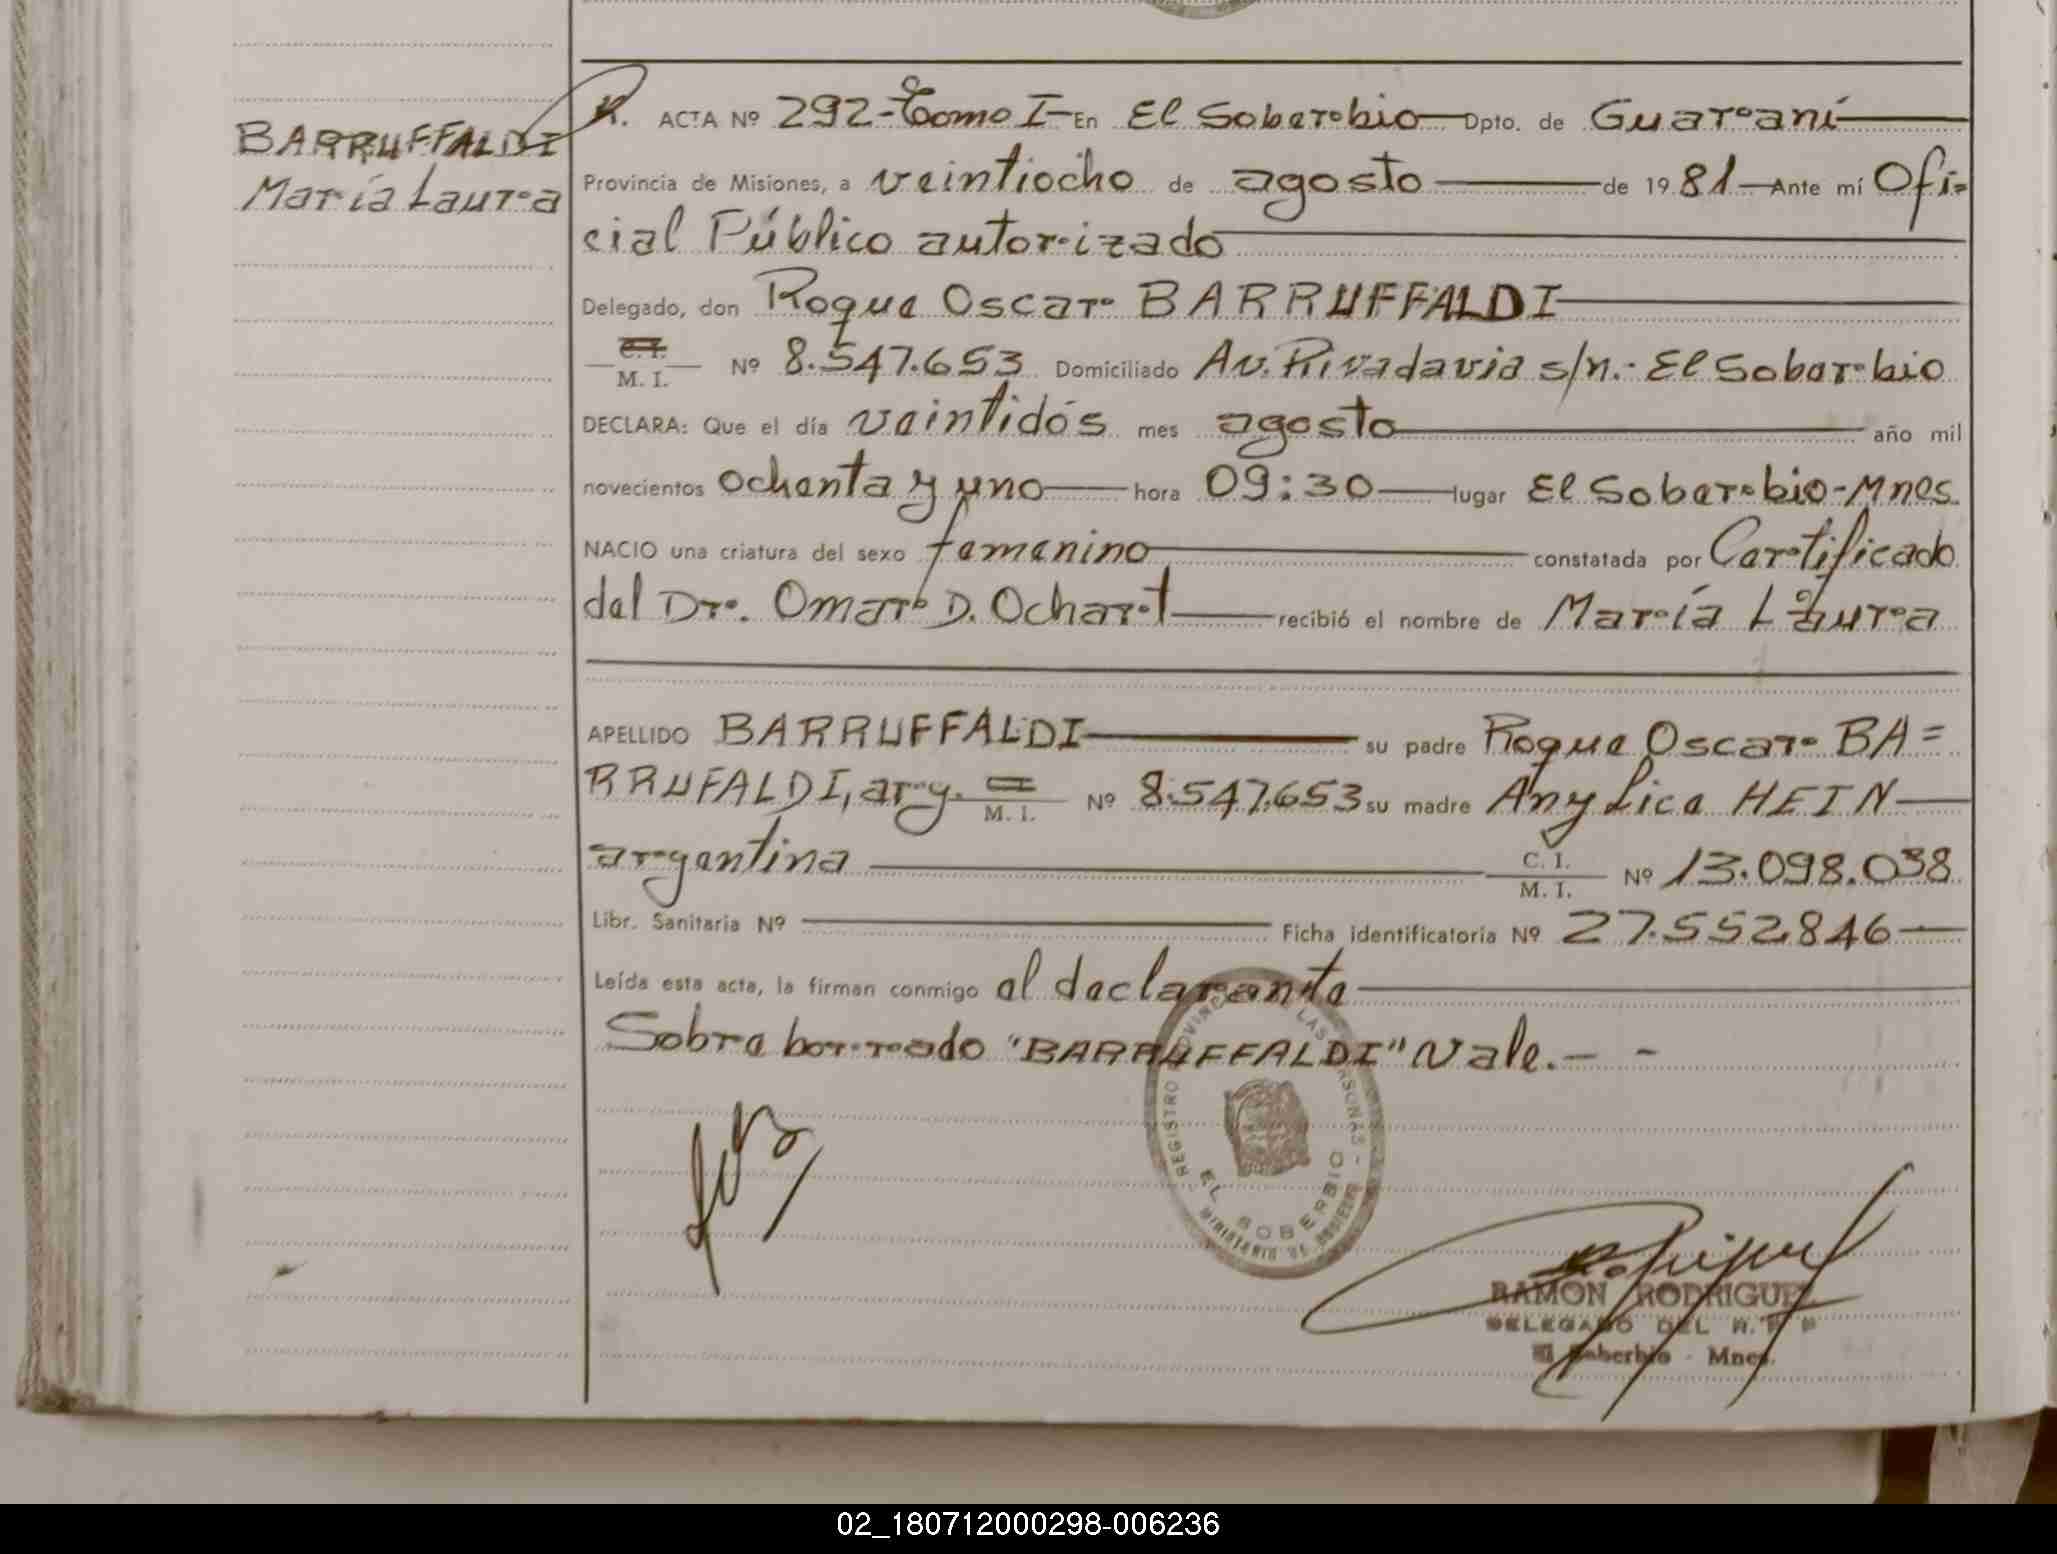 BARRUFFALDI
María Laura
R. ACTA Nº 292-Tomo I En El Soberbio Dpto. de Guaraní
Provincia de Misiones, a veintiocho de agosto de 19 81 Ante mí Ofi=
cial Público autorizado
Delegado, don Roque Oscar BARRUFFALDI
C. I.
M. I. Nº 8.547.653 Domiciliado Av. Rivadavia s/n.- El Soberbio
DECLARA: Que el día veintidós mes agosto año mil
novecientos ochenta y uno hora 09:30 lugar El Soberbio-Mnes.
NACIO una criatura del sexo femenino constatada por Certificado
del Dr. Omar D. Ochart recibió el nombre de María Laura
APELLIDO BARRUFFALDI su padre Roque Oscar BA=
RRUFALDI, arg. M. I. Nº 8.547.653 su madre Angélica HEIN
argentina C. I.
M. I. Nº 13.098.038
Libr. Sanitaria Nº Ficha identificatoria Nº 27.552.846
Leída esta acta, la firman conmigo el declarante
Sobre borrado "BARRUFFALDI" Vale.- -
REGISTRO PROVINCIAL DE LAS PERSONAS -
EL SOBERBIO
MINISTERIO DE GOBIERNO
RAMON RODRIGUEZ
DELEGADO DEL R. P. P.
El Soberbio - Mnes.
02_180712000298-006236